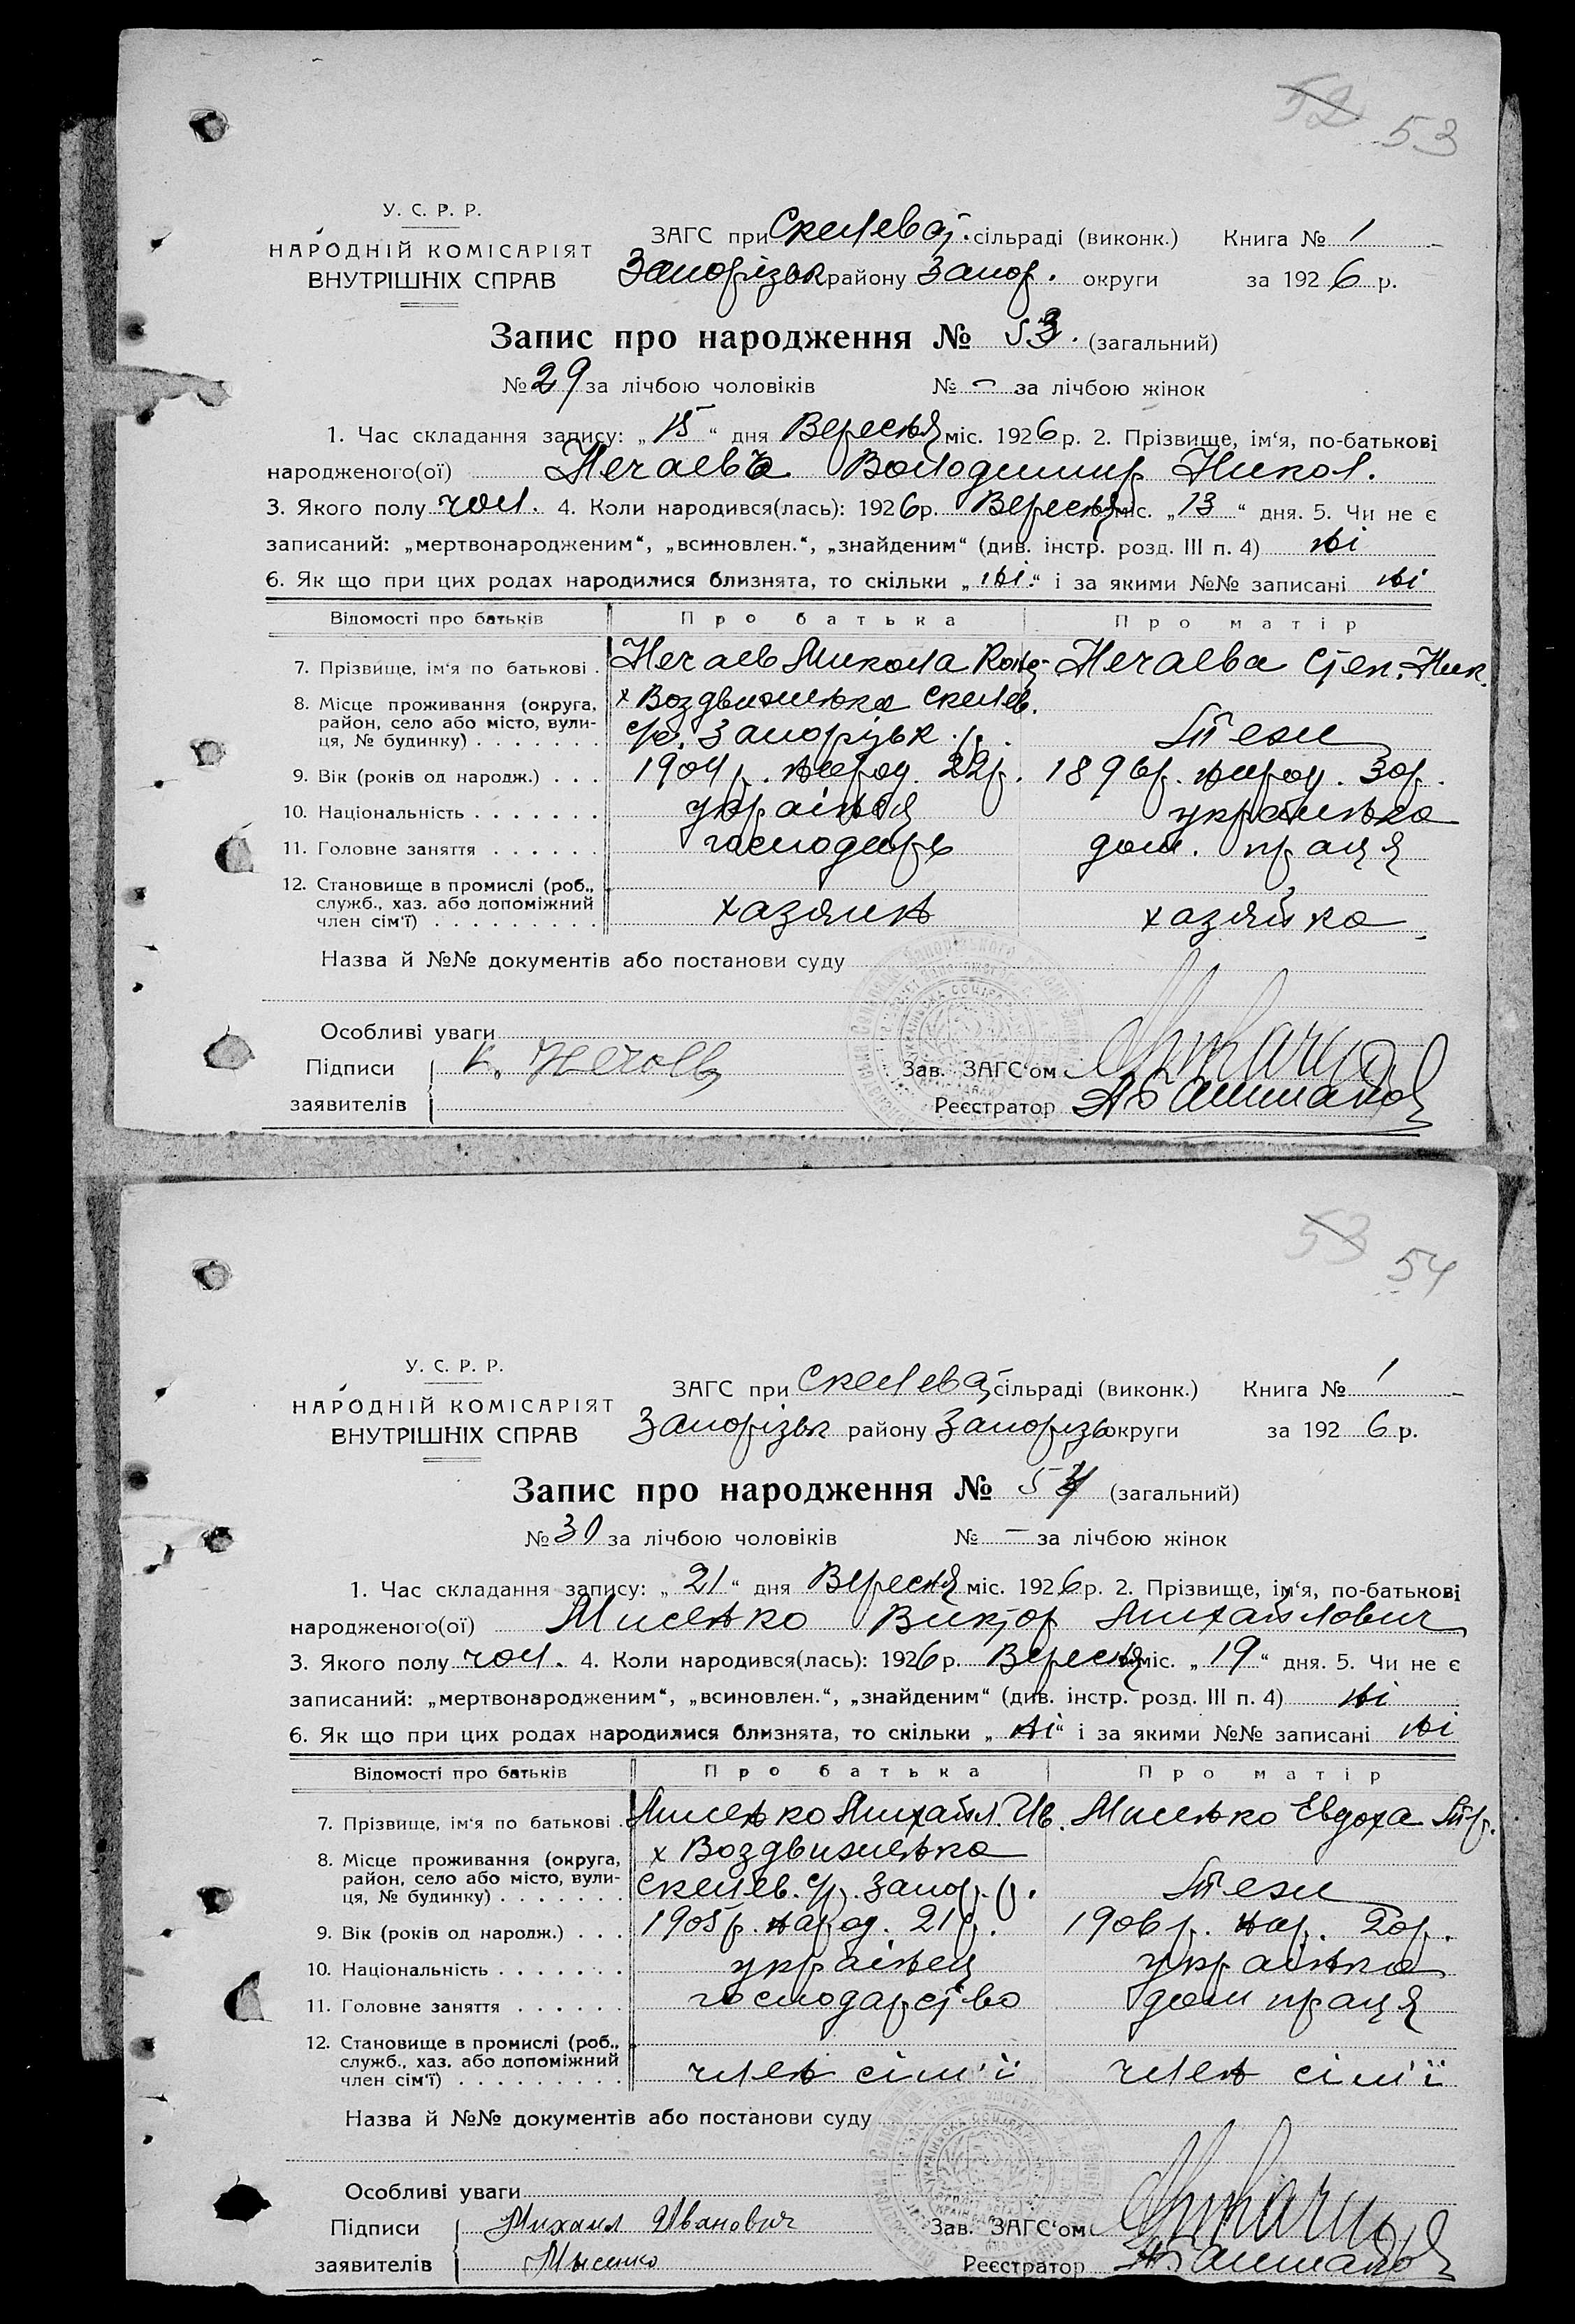 52 53
У. С. Р. Р.
НАРОДНІЙ КОМІСАРІЯТ
ВНУТРІШНІХ СПРАВ
ЗАГС при Скелеват. сільраді (виконк.) Книга № 1
Запорізьк району Запор. округи за 1926 р.
Запис про народження № 53. (загальний)
№ 29 за лічбою чоловіків № - за лічбою жінок
1. Час складання запису: „ 15 “ дня Вересня міс. 1926 р. 2. Прізвище, ім‘я, по-батькові
народженого(ої) Володимир Никол.
3. Якого полу чол. 4. Коли народився(лась): 1926 р. Вересня міс. „ 13 “ дня. 5. Чи не є
записаний: „мертвонародженим“, „всиновлен.“, „знайденим“ (див. інстр. розд. III п. 4) ні
6. Як що при цих родах народилися близнята, то скільки „ ні “ і за якими №№ записані ні
Відомості про батьків Про батька Про матір
7. Прізвище, ім‘я по батькові . Нечаев Микола Нечаева Степ. Ник.
8. Місце проживання (округа, х Воздвиженка Скелев.
район, село або місто, вули-
ця, № будинку) . . . . . . . с/р. Запорізьк. р. Теж
9. Вік (років од народж.) . . . 1904 р. народ. 22 р. 1896 р. народ. 30 р.
10. Національність . . . . . . . українец українка
11. Головне заняття . . . . . . господарь дом. праця
12. Становище в промислі (роб.,
служб., хаз. або допоміжний
член сім‘ї) . . . . . . . . . хазяин хазяйка
Назва й №№ документів або постанови суду
Особливі уваги
Підписи Зав. ЗАГС‘ом
заявителів Реєстратор
53 54
У. С. Р. Р.
НАРОДНІЙ КОМІСАРІЯТ
ВНУТРІШНІХ СПРАВ
ЗАГС при Скелеват сільраді (виконк.) Книга № 1
Запорізьк району Запорізь округи за 1926 р.
Запис про народження № 54 (загальний)
№ 30 за лічбою чоловіків № - за лічбою жінок
1. Час складання запису: „ 21 “ дня Вересня міс. 1926 р. 2. Прізвище, ім‘я, по-батькові
народженого(ої) Мисенко Виктор Михайлович
3. Якого полу чол. 4. Коли народився(лась): 1926 р. Вересня міс. „ 19 “ дня. 5. Чи не є
записаний: „мертвонародженим“, „всиновлен.“, „знайденим“ (див. інстр. розд. III п. 4) ні
6. Як що при цих родах народилися близнята, то скільки „ ні “ і за якими №№ записані ні
Відомості про батьків Про батька Про матір
7. Прізвище, ім‘я по батькові . Мисенко Михайл. Ив. Мисенко Евдоха
8. Місце проживання (округа, х Воздвиженка
район, село або місто, вули-
ця, № будинку) . . . . . . . Скелев. с/р. Запор. р. Теж
9. Вік (років од народж.) . . . 1905 р. народ. 21 р. 1906 р. нар. 20 р.
10. Національність . . . . . . . українец українка
11. Головне заняття . . . . . . господарство дом праця
12. Становище в промислі (роб.,
служб., хаз. або допоміжний
член сім‘ї) . . . . . . . . . член сім'ї член сім'ї
Назва й №№ документів або постанови суду
Особливі уваги
Підписи Михаил Иванович Зав. ЗАГС‘ом
заявителів Мысенко Реєстратор